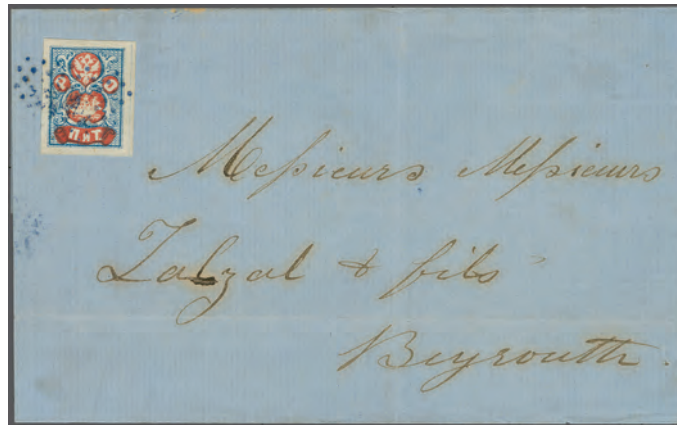 Messieurs Messieurs
Zalzal & fils
Beyrouth.